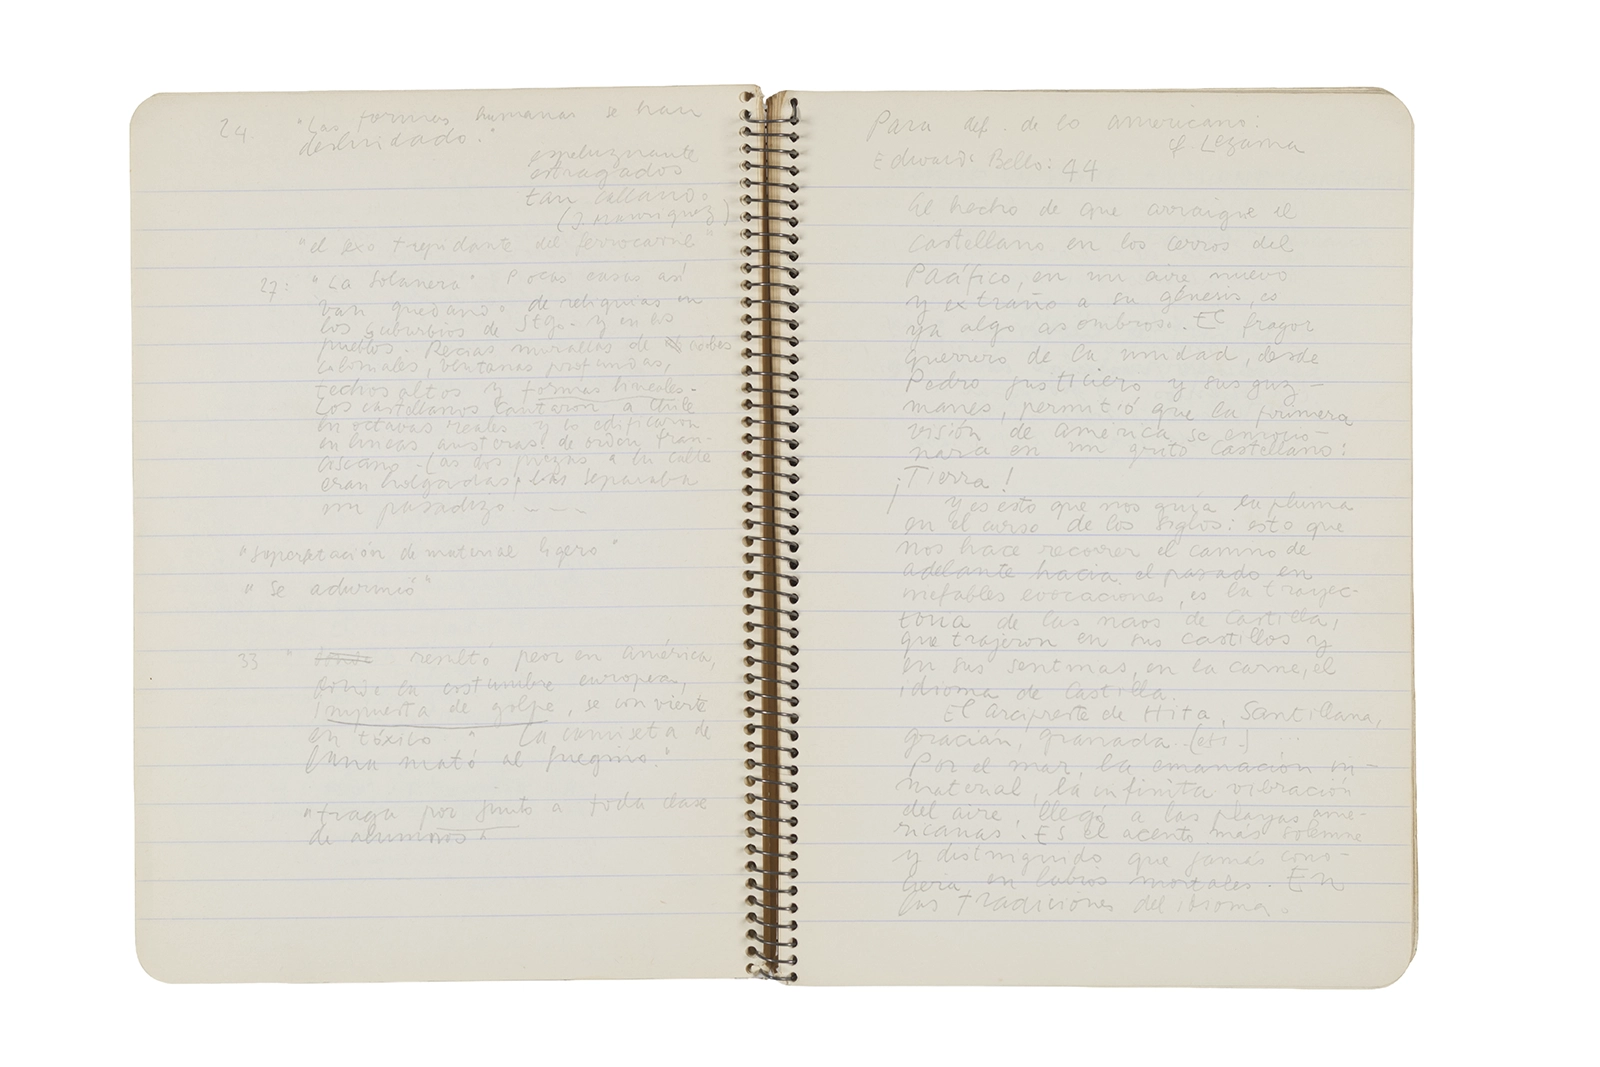 24 "Las formas humanas se han
deslindado."
espeluznante
estragados
tan callando
(J. Manrique)
"el sexo trepidante del ferrocarril"
27: "La Solanera" Pocas casas así
van quedando de reliquias en
los suburbios de Stgo. y en los
pueblos. Recias murallas de adobes
coloniales, ventanas profundas,
techos altos y formas lineales.
Los castellanos cantaron a Chile
en octavas reales y lo edificaron
en líneas austeras: de orden fran-
ciscano. Las dos piezas a la calle
eran holgadas; las separaba
un pasadizo
"superstación de material ligero"
"se adurmió"
33 " resultó peor en América,
donde la costumbre europea,
impuesta de golpe, se convierte
en tóxico " La camiseta de
lana mató al fueguino."
"traga por junto a toda clase
de alumnos"
Para def. de lo americano:
cf. Lezama
Edwards Bello: 44
El hecho de que arraigue el
castellano en los cerros del
Pacífico, en un aire nuevo
y extraño a su génesis, es
ya algo asombroso. El fragor
guerrero de la unidad, desde
Pedro justiciero y sus guz-
manes, permitió que la primera
visión de América se enrono-
nara en un grito castellano:
¡Tierra!
Y es esto que nos guía la pluma
en el curso de los siglos: esto que
nos hace recorrer el camino de
adelante hacia el pasado en
inefables evocaciones, es la trayec-
toria de las naos de Castilla,
que trajeron en sus castillos y
en sus sentinas, en la carne, el
idioma de Castilla.
El Arcipreste de Hita, Santillana,
Gracián, Granada.. (etc.) ...
Por el mar, la emanación in-
material, la infinita vibración
del aire, llegó a las playas ame-
ricanas. Es el acento más solemne
y distinguido que jamás cono-
ciera en labios mortales. En
las tradiciones del idioma.